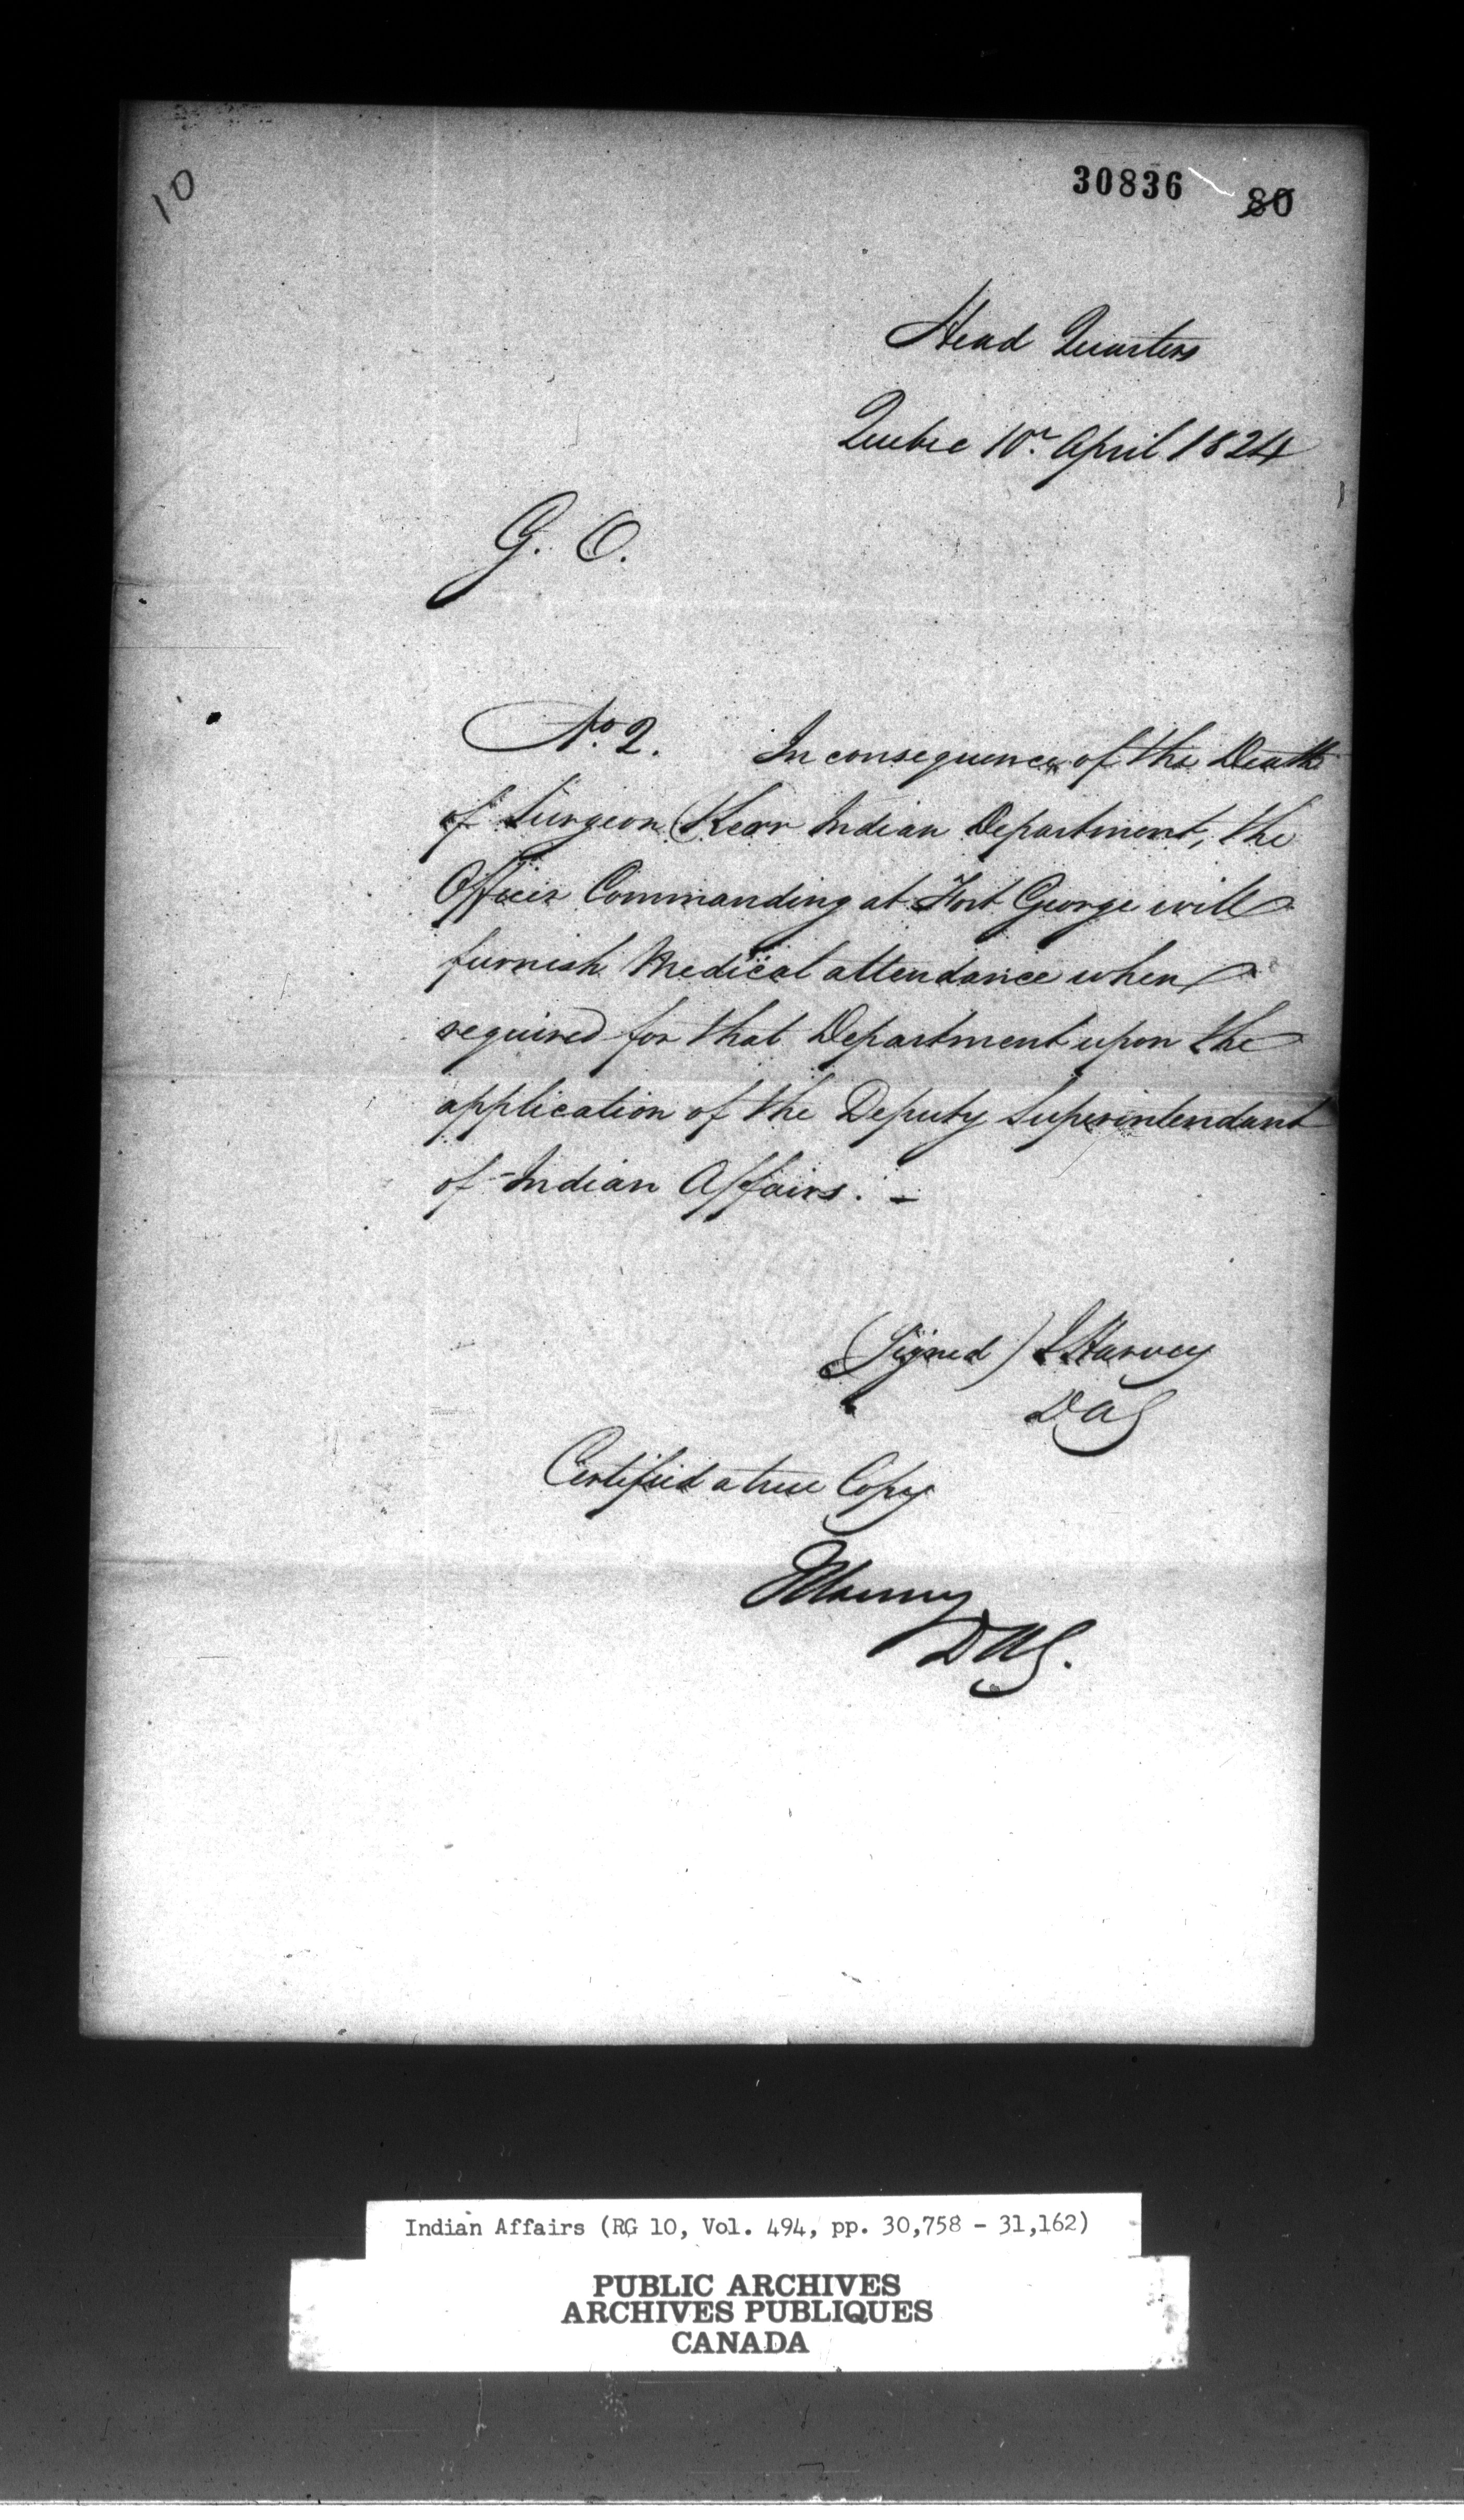 10
30836 80
Head Quarters
Quebec 10th April 1824
G. O.
No. 2. In consequence of the Death
of Surgeon Kerr Indian Department, the
Officer Commanding at Fort George will
furnish Medical attendance when
required for that Department upon the
application of the Deputy Superintendant
of Indian Affairs. -
(Signed) J Harvey
DAG
Certified a true Copy
DAG.
Indian Affairs (RG 10, Vol. 494, pp. 30,758 - 31,162)
PUBLIC ARCHIVES
ARCHIVES PUBLIQUES
CANADA